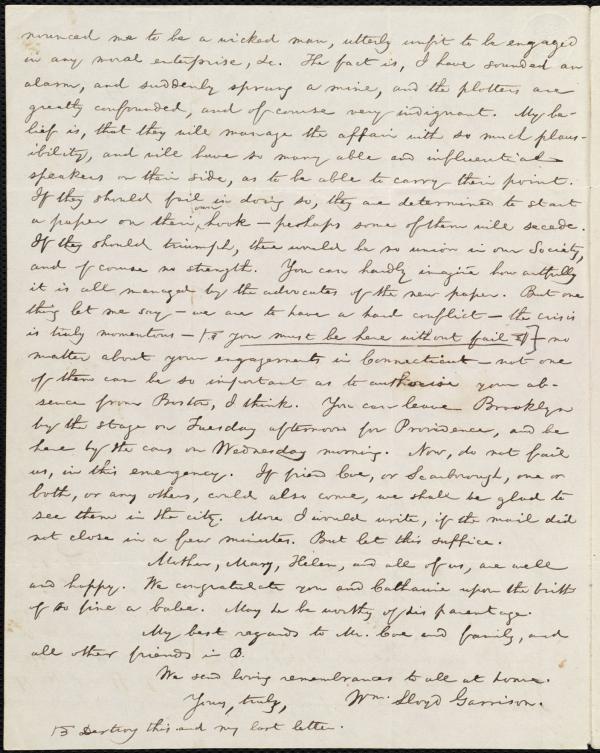 nounced me to be a wicked man, utterly unfit to be engaged
in any moral enterprise, &c. The fact is, I have sounded an
alarm, and suddenly sprung a mine, and the plotters are
greatly confounded, and of course very indignant. My be-
lief is, that they will manage the affair with so much plaus-
ibility, and will have so many able and influential
speakers on their side, as to be able to carry their point.
If they should fail in doing so, they are determined to start
a paper on their own hook — perhaps some of them will secede.
If they should triumph, there would be no union in our Society,
and of course no strength. You can hardly imagine how artfully
it is all managed by the advocates of the new paper. But one
thing let me say — we are to have a hard conflict — the crisis
is truly momentous — ☞ you must be here without fail ☜] — no
matter about your engagements in Connecticut — not one
of them can be so important as to authorise your ab-
sence from Boston, I think. You can leave Brooklyn
by the stage on Tuesday afternoon for Providence, and be
here by the cars on Wednesday morning. Now, do not fail
us, in this emergency. If friend Coe, or Scarbrough, one or
both, or any others, could also come, we shall be glad to
see them in the city. More I would write, if the mail did
not close in a few minutes. But let this suffice.
Mother, Mary, Helen, and all of us, are well
and happy. We congratulate you and Catharine upon the birth
of so fine a babe. May he be worthy of his parentage.
My best regards to Mr. Coe and family, and
all other friends in B.
We send loving remembrances to all at home.
Yours, truly, Wm. Lloyd Garrison.
☞ Destroy this and my last letter.